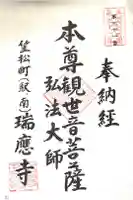 奉納経
本尊観世音菩薩
弘法大師
笠松町(駅南)
瑞應寺